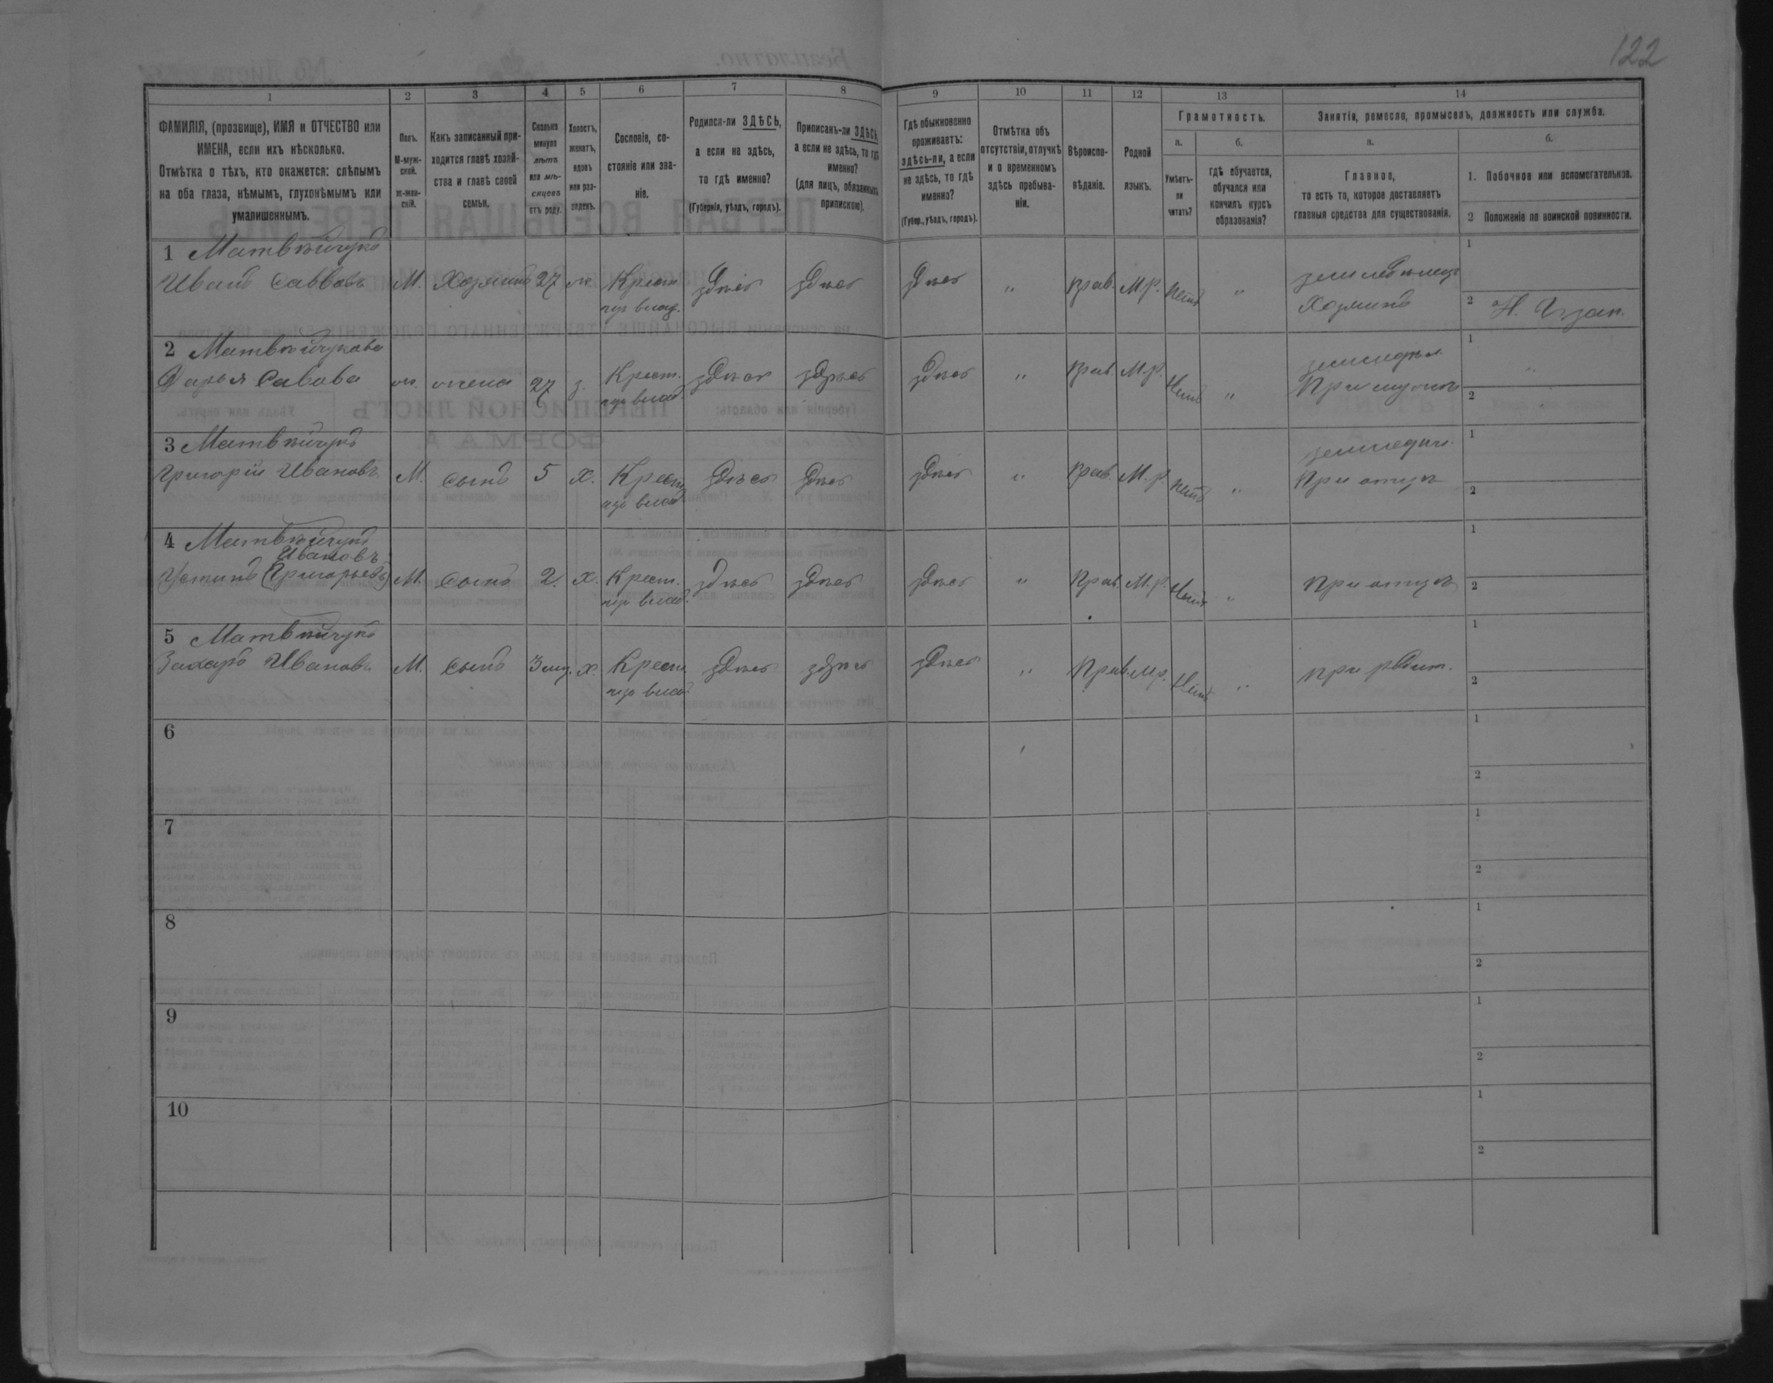 122
1 2 3 4 5 6 7 8 9 10 11 12 13 14
ФАМИЛІЯ, (прозвище), ИМЯ и ОТЧЕСТВО или
ИМЕНА, если ихъ нѣсколько.
Отмѣтка о тѣхъ, кто окажется: слѣпымъ
на оба глаза, нѣмымъ, глухонѣмымъ или
умалишеннымъ.
Полъ.
М-муж-
ской.
ж-жен-
скій.
Какъ записанный при-
ходится главѣ хозяй-
ства и главѣ своей
семьи.
Сколько
минуло
лѣтъ
или мѣ-
сяцевъ
отъ роду.
Холостъ,
женатъ,
вдовъ
или раз-
веденъ.
Сословіе, со-
стояніе или зва-
ніе.
Родился-ли ЗДѢСЬ,
а если не здѣсь,
то гдѣ именно?
(Губернія, уѣздъ, городъ).
Приписанъ-ли ЗДѢСЬ,
а если не здѣсь, то гдѣ
именно?
(для лицъ, обязанныхъ
припискою).
Гдѣ обыкновенно
проживаетъ:
здѣсь-ли, а если
не здѣсь, то гдѣ
именно?
(Губер., уѣздъ, городъ).
Отмѣтка объ
отсутствіи, отлучкѣ
и о временномъ
здѣсь пребыва-
ніи.
Вѣроиспо-
вѣданіе.
Родной
языкъ.
Грамотность.
а.
Умѣетъ-
ли
читать?
б.
гдѣ обучается,
обучался или
кончилъ курсъ
образованія?
Занятіе, ремесло, промыселъ, должность или служба.
а.
Главное,
то есть то, которое доставляетъ
главныя средства для существованія.
б.
1. Побочное или вспомогательное.
2 Положеніе по воинской повинности.
1 Матвѣйчукъ
Иванъ Саввовъ М. Хозяинъ 27 ж. Крест. здѣсь здѣсь здѣсь „ Прав. М.р. Нетъ „ земледѣлецъ
Хозяинъ
1
2
2 Матвѣйчукова
Дарья Савова ж. жена 27 з. Крест. здѣсь здѣсь здѣсь „ Прав. М.р. Нетъ „
При мужѣ
1
2
3 Матвѣйчукъ
Григорій Ивановъ М. сынъ 5 х. Крест. здѣсь здѣсь здѣсь „ Прав. М.р. Нетъ „
При отцѣ
1
2
4 Матвѣйчукъ
Ивановъ
Устинъ (Григорьевъ) М. сынъ 2. х. Крест. здѣсь здѣсь здѣсь „ Прав. М.р. Нетъ „ при отцѣ
1
2
5 Матвѣйчукъ
Захаръ Ивановъ М. сынъ 3 х. Крест. здѣсь здѣсь здѣсь „ Прав. М.р. Нетъ „ при
1
2
6
1
2
7
1
2
8
1
2
9
1
2
10
1
2